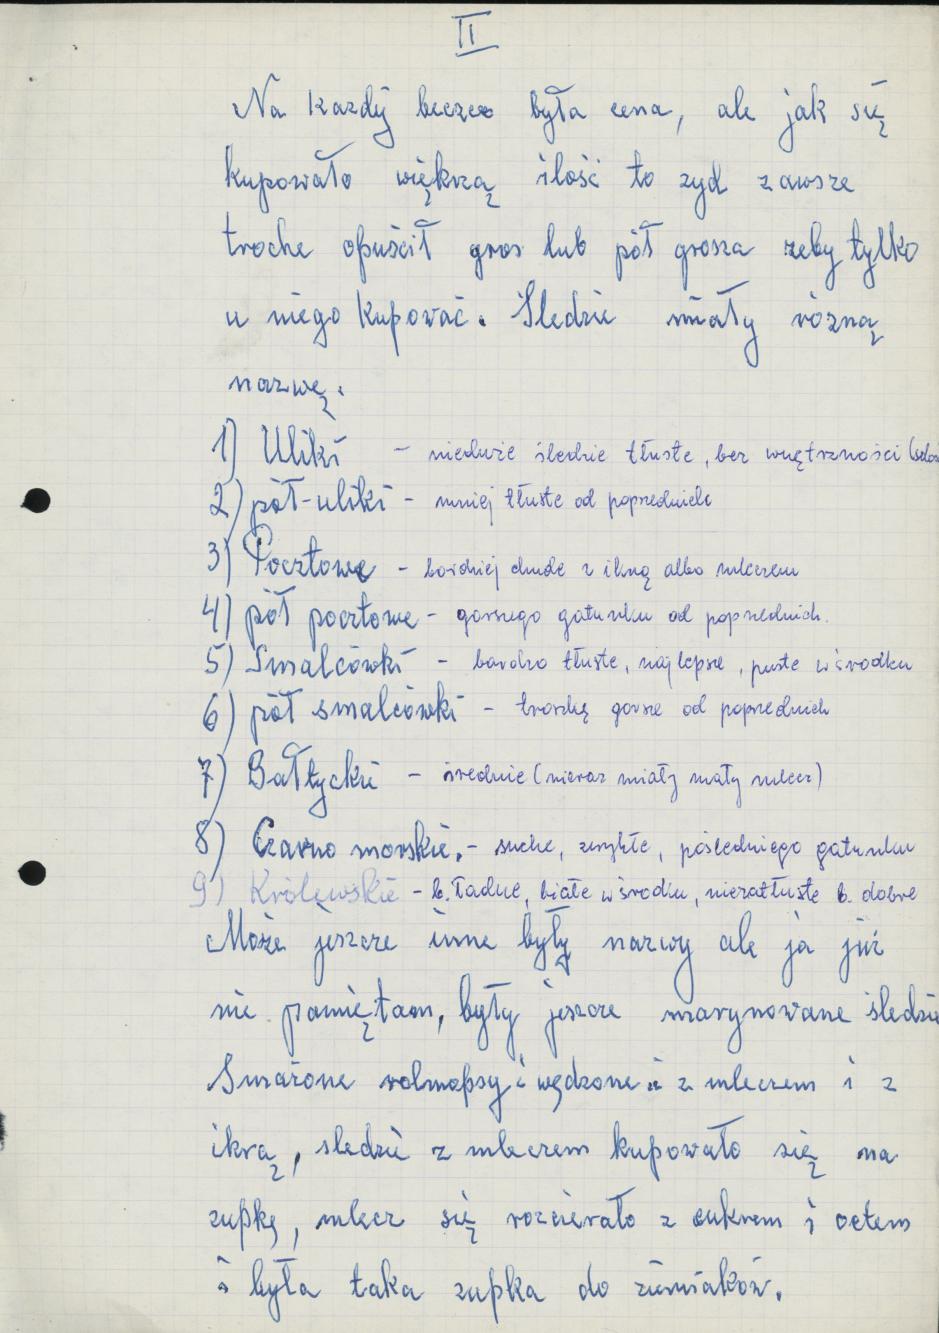 II
Na kazdy beczce była cena, ale jak się
kupowało większą ilość to zyd zawsze
troche opuścił gros lub pół grosza zeby tylko
u niego kupować. Śledzie miały rózną
nazwę.
1) Uliki – nieduże śledzie tłuste, bez wnętrzności
2) pół-uliki – mniej tłuste od poprzednich
3) Pocztowe – bardziej chude z ikrą albo mleczem
4) pół pocztowe – gorszego gatunku od poprzednich.
5) Smalcówki – bardzo tłuste, najlepsze, puste w środku
6) pół smalcówki – troszkę gorsze od poprzednich
7) Bałtyckie – średnie (nieraz miały mały mlecz)
8) Czarno morskie. – suche, zwykłe, pośledniego gatunku
9) Królewskie – b. ładne, białe w środku, niezatłuste b. dobre
Może jeszcze inne były nazwy ale ja już
nie pamiętam, były jeszcze marynowane śledzie
Smażone rolmopsy i wędzone i z mleczem i z
ikrą, sledzie z mleczem kupowało się na
zupkę, mlecz się rozcierało z cukrem i octem
i była taka zupka do ziemiaków.